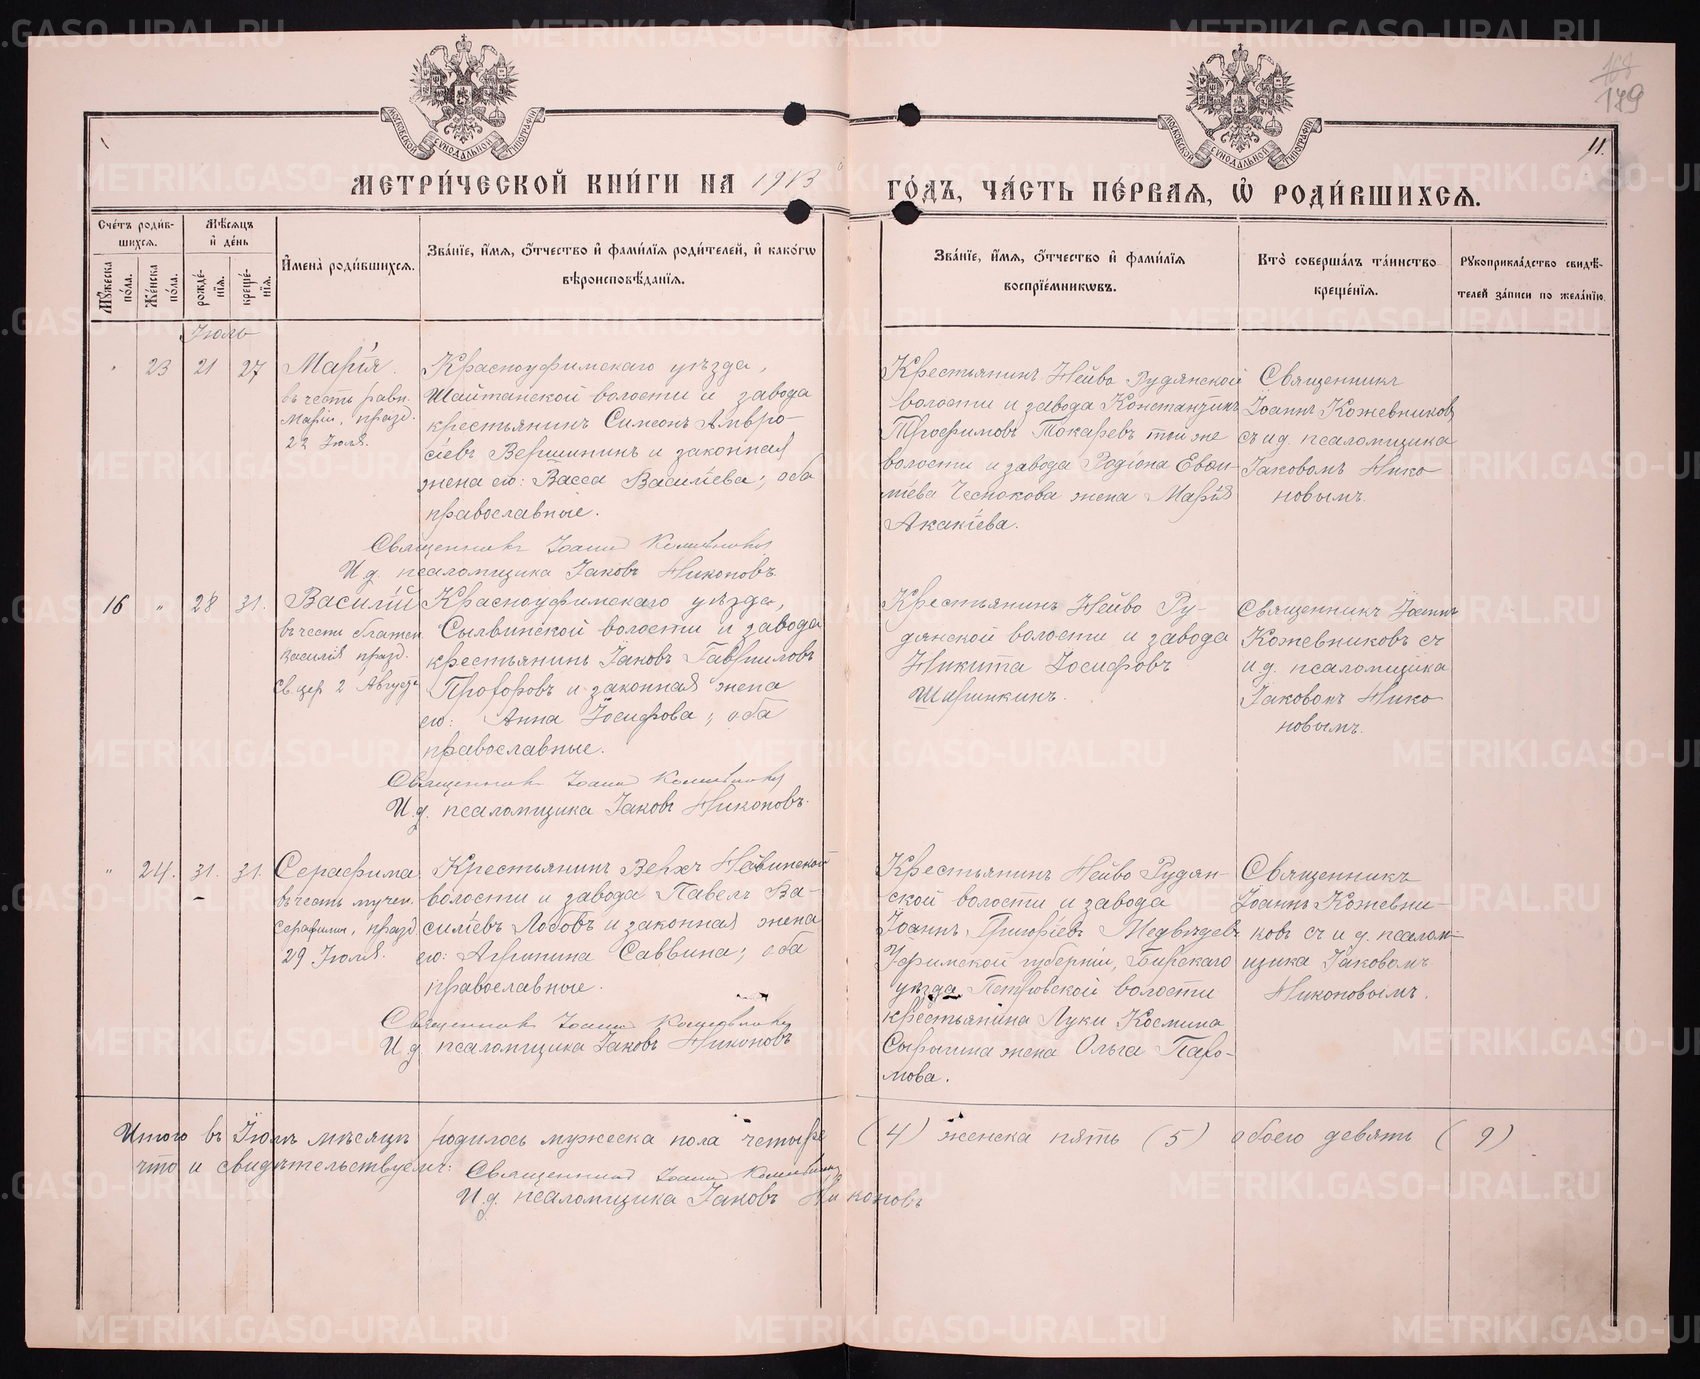 МЕТРИ́ЧЕСКОЙ КНИ́ГИ НА 1913 ГО́ДЪ, ЧА́СТЬ ПЕ́РВАѦ, Ѡ҆ РОДИ́ВШИХСѦ.
168
179
11.
МОСКОВСКОЙ СѴНОДАЛЬНОЙ ТИПОГРАФІИ
МОСКОВСКОЙ СѴНОДАЛЬНОЙ ТИПОГРАФІИ
Сче́тъ роди́в-
шихсѧ.
Мꙋ́жеска по́ла.
Же́нска по́ла.
Мѣ́сѧцъ
и҆ де́нь
рожде́-
нїѧ.
креще́-
нїѧ.
И҆мена̀ роди́вшихсѧ.
Зва́нїе, и҆́мѧ, ѻ҆́тчество и҆ фами́лїѧ роди́телей, и҆ како́гѡ
вѣроисповѣ́данїѧ.
Зва́нїе, и҆́мѧ, ѻ҆́тчество и҆ фами́лїѧ
воспрїе́мникѡвъ.
Кто̀ соверша́лъ та́инство
креще́нїѧ.
Рꙋкоприкла́дство свидѣ́-
телей за́писи по жела́нїю.
Іюль
" 23 21 27
Марія.
въ честь равн.
Маріи, празд.
22 Іюля.
Красноуфимскаго уѣзда,
Шайтанской волости и завода
крестьянинъ Симеонъ Амвро-
сіевъ Вершининъ и законная
жена его: Васса Василіева; оба
православные.
Священникъ Іоаннъ Кожевниковъ
И д. псаломщика Іаковъ Никоновъ.
Крестьянинъ Нейво Рудянской
волости и завода Константинъ
Трофимовъ Токаревъ той же
волости и завода Родіона Евои-
міева Чеснокова жена Марія
Акакіева.
Священникъ
Іоаннъ Кожевниковъ
съ и д. псаломщика
Іаковомъ Нико-
новымъ.
16 " 28 31.
Василій
въ честь блажен
Василія празд.
Св. цер 2 Августа
Красноуфимскаго уѣзда,
Сылвинской волости и завода
крестьянинъ Іаковъ Гавриловъ
Прохоровъ и законная жена
его: Анна Іосифова; оба
православные.
Священникъ Іоаннъ Кожевниковъ
И. д. псаломщика Іаковъ Никоновъ.
Крестьянинъ Нейво Ру-
дянской волости и завода
Никита Іосифовъ
Священникъ Іоаннъ
Кожевниковъ съ
и д. псаломщика
Іаковомъ Нико
новымъ.
" 24. 31. 31.
Серафима
въ честь мучен.
Серафимы, празд
29 Іюля.
Крестьянинъ Верхъ Нейвинской
волости и завода Павелъ Ва-
силіевъ Лобовъ и законная жена
его: Агрипина Саввина; оба
православные.
Священникъ Іоаннъ Кожевниковъ
И д. псаломщика Іаковъ Никоновъ
Крестьянинъ Нейво Рудян-
ской волости и завода
Іоаннъ Григоріевъ Медвѣдевъ
Уфимской губерніи, Бирскаго
уѣзда Петровской волости
крестьянина Луки Космина
жена Ольга Пахо-
мова.
Священникъ
Іоаннъ Кожевни-
ковъ съ и д. псалом-
щика Іаковомъ
Никоновымъ.
Итого въ Іюлѣ мѣсяцѣ родилось мужеска пола четыре (4) женска пять (5) обоего девять (9)
что и свидѣтельствуемъ: Священникъ Іоаннъ Кожевниковъ
И. д. псаломщика Іаковъ Никоновъ
METRIKI.GASO-URAL.RU